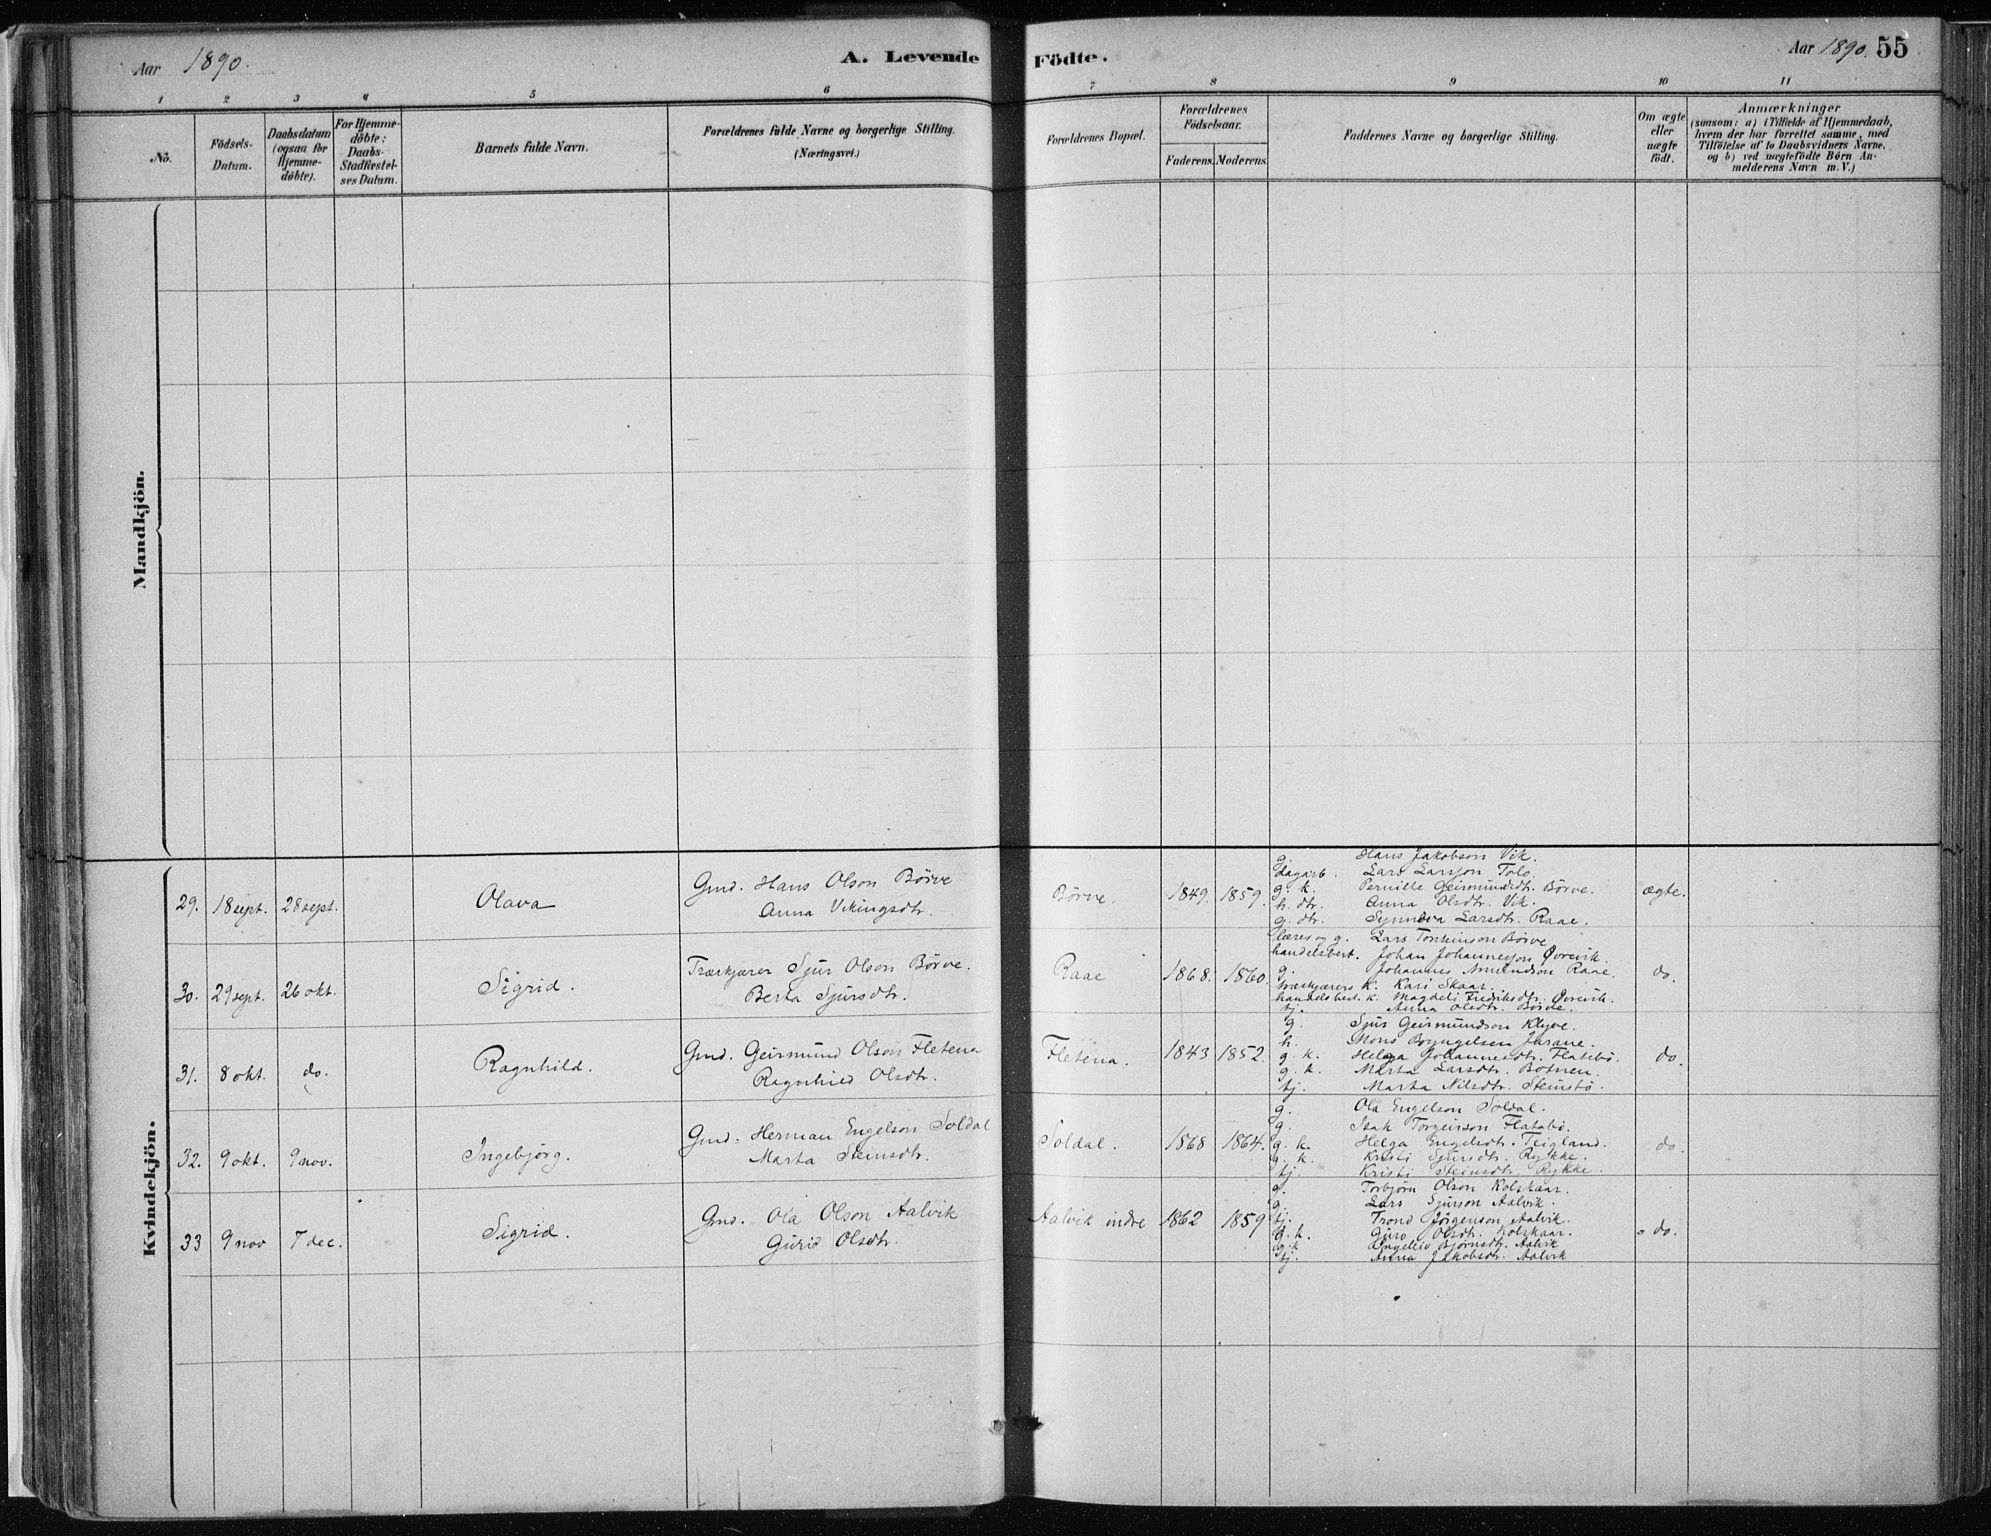 Aar 1890.
A. Levende Födte.
Aar 1890. 55
1 2 3 4 5 6 7 8 9 10 11
No.
Födsels-
Datum.
Daabsdatum
(ogsaa for
Hjemme-
döbte).
For Hjemme-
döbte:
Daabs-
Stadfæstel-
ses Datum.
Barnets fulde Navn.
Forældrenes fulde Navne og borgerlige Stilling.
(Næringsvei.)
Forældrenes Bopæl.
Forældrenes
Födselsaar.
Faderens. Moderens.
Faddernes Navne og borgerlige Stilling.
Om ægte
eller
uægte
födt.
Anmærkninger
(saasom: a) i Tilfælde af Hjemmedaab,
hvem der har forrettet samme, med
Tilföielse af to Daabsvidners Navne,
og b) ved uægtefödte Börn An-
melderens Navn m. V.)
Mandkjön.
Kvindekjön.
29. 18 sept. 28 sept. Olava
Gmd. Hans Olson Börve
Anna Vikingsdtr.
Börve. 1849. 1859.
g. Hans Jakobson Vik.
dagarb. Lars Larsson Tolo.
g. k. Pernille Geirmundsdtr. Börve.
h. dtr. Anna Olsdtr. Vik.
g. dtr. Synneva Larsdtr. Raae.
ægte.
30. 29 sept. 26 okt. Sigrid.
Træskjærer Sjur Olson Börve.
Berta Sjursdtr.
Raae 1868. 1860.
lærer og g. Lars Torkinson Börve
handelsbest. Johan Johannesson Övrevik.
g. Johannes Amundson Raae.
træskjærers k. Kari Skaar.
handelsbest. k. Magdeli Fredriksdtr. Övrevik.
tj. Anna Olsdtr. Börve.
do.
31. 8 okt. do. Ragnhild.
Gmd. Geirmund Olson Fletena
Ragnhild Olsdtr.
Fletena. 1843 1852.
g. Sjur Geirmundson Klyve.
h. Mons Jarane.
g. k. Helga Johannesdtr. Flatebö.
g. k. Marta Larsdtr. Botnen.
tj. Marta Nilsdtr. Steinstö.
do.
32. 9 okt. 9 nov. Ingebjörg.
Gmd. Herman Engelson Soldal
Marta Steinsdtr.
Soldal. 1868 1864.
g. Ola Engelson Soldal.
g. Isak Torgeirson Flatebö.
g. k. Helga Engelsdtr. Teigland.
g. k. Kristi Sjursdtr. Rykke.
tj. Kristi Steinsdtr. Rykke.
do.
33 9 nov 7 dec. Sigrid.
Gmd. Ola Olson Aalvik
Gurid Olsdtr.
Aalvik indre 1862 1859
g. Torbjörn Olson Kolskaar.
g. Lars Sjurson Aalvik.
tj. Trond Jörgenson Aalvik.
g. k. Guro Olsdtr. Kolskaar.
g. k. Björnsdtr. Aalvik
tj. Anna Jakobsdtr. Aalvik
do.